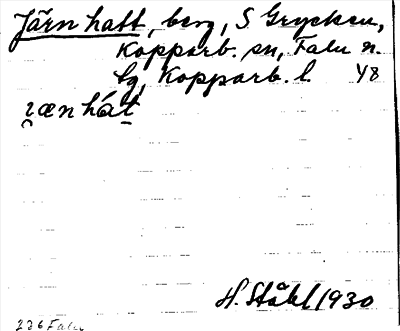 Järnhatt, berg, S Grycken,
Kopparb. sn, Falu n.
tg, Kopparb. l. Y8
ı̯ænhát
H. Ståhl 1930
236 Falu